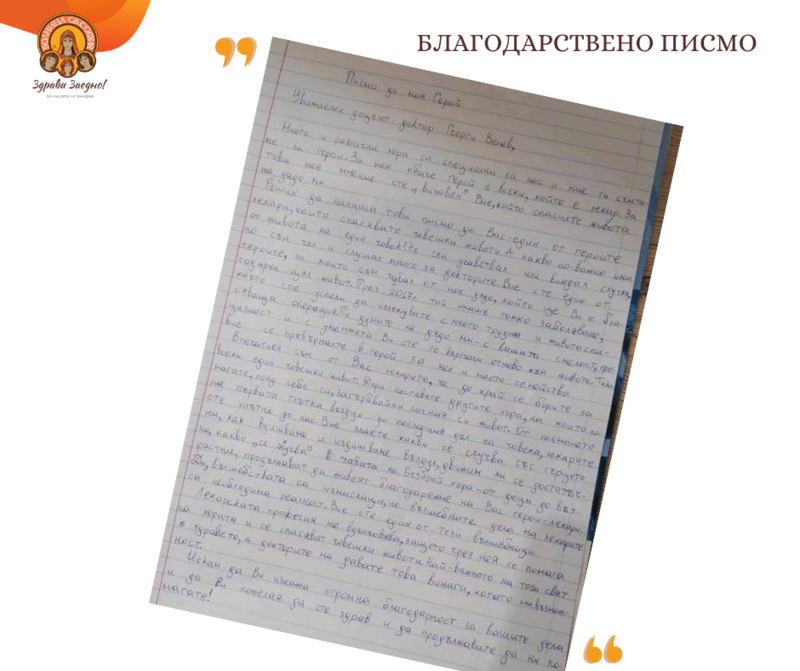 БОЛНИЦА СВ. СОФИЯ
Здрави Заедно!
БЛАГОДАРСТВЕНО ПИСМО
Писмо до моя Герой
Уважаеми доцент доктор Георги Велев,
Много и различни хора са специални за нас и ние ги счита-
ме за герои. За мен обаче Герой е всеки, който е лекар. За
това мое мнение сте „виновен“ Вие, който спасихте живота
на дядо ми.
Реших да напиша това писмо до Вас - един от героите
лекари, които спасявате човешки животи. А какво по-важно има
от живота на един човек! Не съм участвал или виждал случка,
но съм чел и слушал много за докторите. Вие сте един от
героите, за които съм чувал от моя дядо, който ще Ви е бла-
годарен цял живот. През 2017г. той имаше тежко заболяване,
което сте успели да излекувате с много трудна и животоспа-
сяваща операция. По думите на дядо ми - с вашата смелост, пре-
цизност и с уменията Ви сте го върнали отново към живота. Така
Вие се превърнахте в герой за мен и моето семейство.
Впечатлен съм от Вас, лекарите, че до край се борите за
всеки един човешки живот. Дори поставяте другите хора, на които по-
магате, пред себе си, загърбвайки личния си живот. От поемането
на първата глътка въздух до последния дъх на човека, лекарите
сте плътно до нас. Вие знаете какво се случва със сърцето
ни, как вдишваме и издишваме въздух, движим ли се достатъч-
но, какво „се случва“ в главата ни. Безброй хора - от деца до въз-
растни, продължават да живеят благодарение на Вас герои - лекари.
Да, вълшебствата са измислици, но вълшебните дела на лекарите
са необходима реалност. Вие сте един от тези вълшебници.
Лекарската професия ме вдъхновява, защото чрез нея се помага
на хората и се спасяват човешки животи. Най-важното на този свят
е здравето, а докторите ни давате това винаги, когато има възмож-
ност.
Искам да Ви изкажа огромна благодарност за вашите дела
и да Ви пожелая да сте здрав и да продължавате да ни по-
магате!